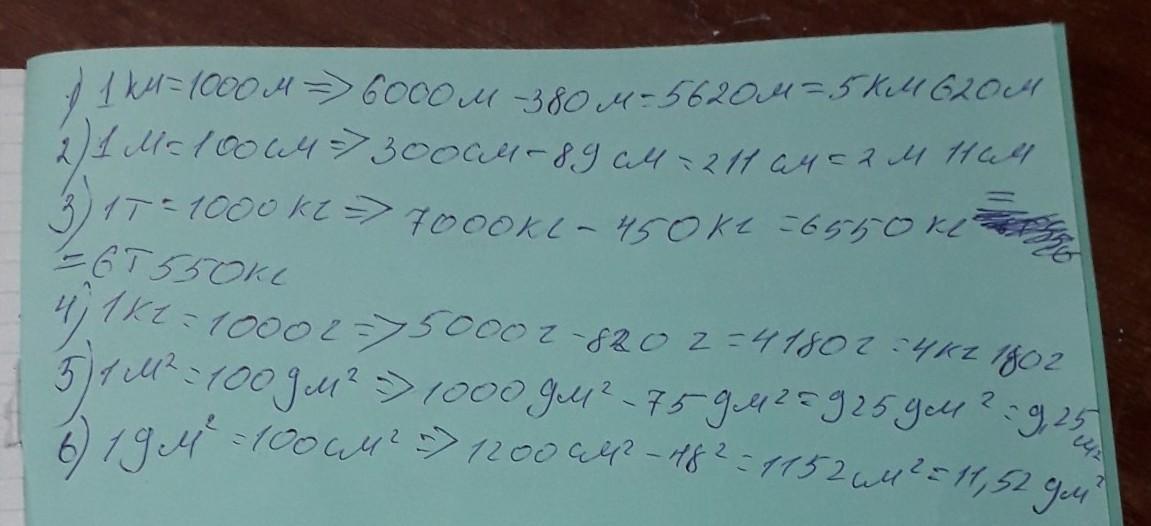 1) 1 км=1000м => 6000м -380м=5620м=5км 620м
2) 1 м=100см => 300см-89см=211см=2м 11см
3) 1т=1000кг => 7000кг-450кг=6550кг =
=6т 550кг
4) 1кг=1000г => 5000г-820г=4180г=4кг 180г
5) 1м²=100дм² => 1000дм²-75дм²=925дм²=9,25
6) 1дм²=100см² => 1200см²-48²=1152см²=11,52дм²